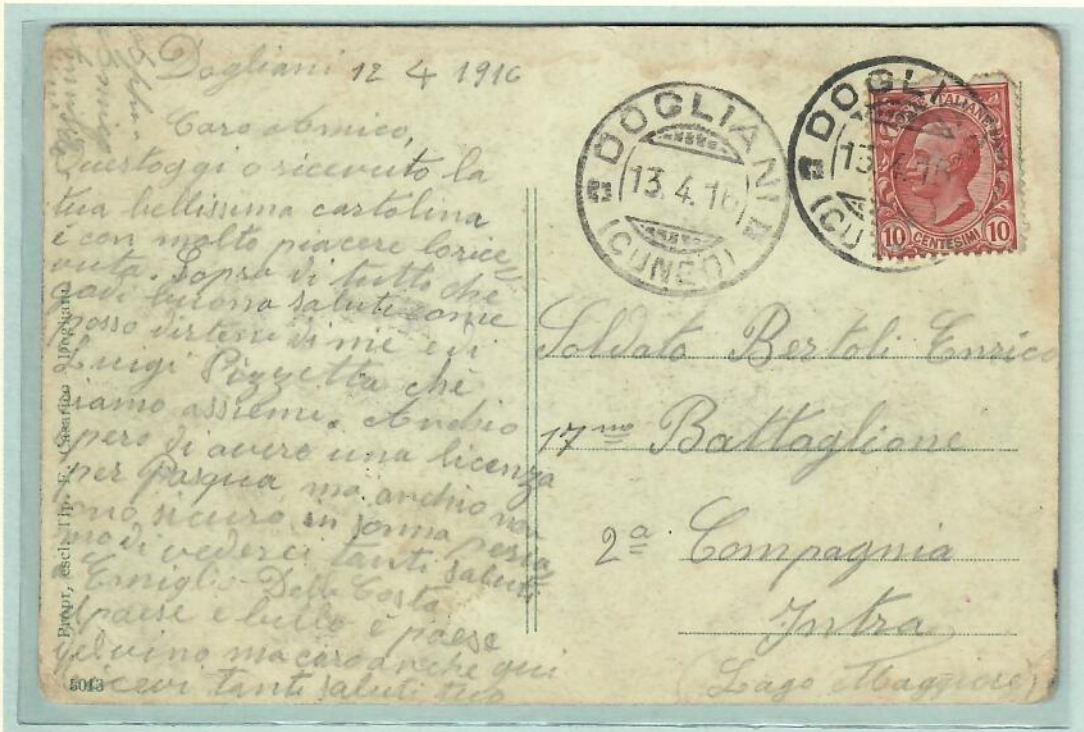 Dogliani 12 4 1916
Caro Amico,
Questoggi o ricevuto la
tua bellissima cartolina
e con molto piacere lorice
vuta. Sopra di tutto che
godi buona salute come
posso dirtene di me e di
Luigi Pizzetta che
siamo assieme. Anchio
spero di avere una licenza
per Pasqua ma anchio non
sono sicuro in somma
di vederci tanti saluti
Dalla Costa
paese e bello e paese
del vino ma caro anche qui
ricevi tanti saluti tuo
DOGLIANI
13.4.16
(CUNEO)
DOGLI
13.4.16
(CU
POSTE ITALIANE
10 CENTESIMI 10
Soldato Bertoli Enrico
17mo Battaglione
2a Compagnia
Intra
(Lago Maggiore)
Propr. escl. Tip. F. Dogliani
5013